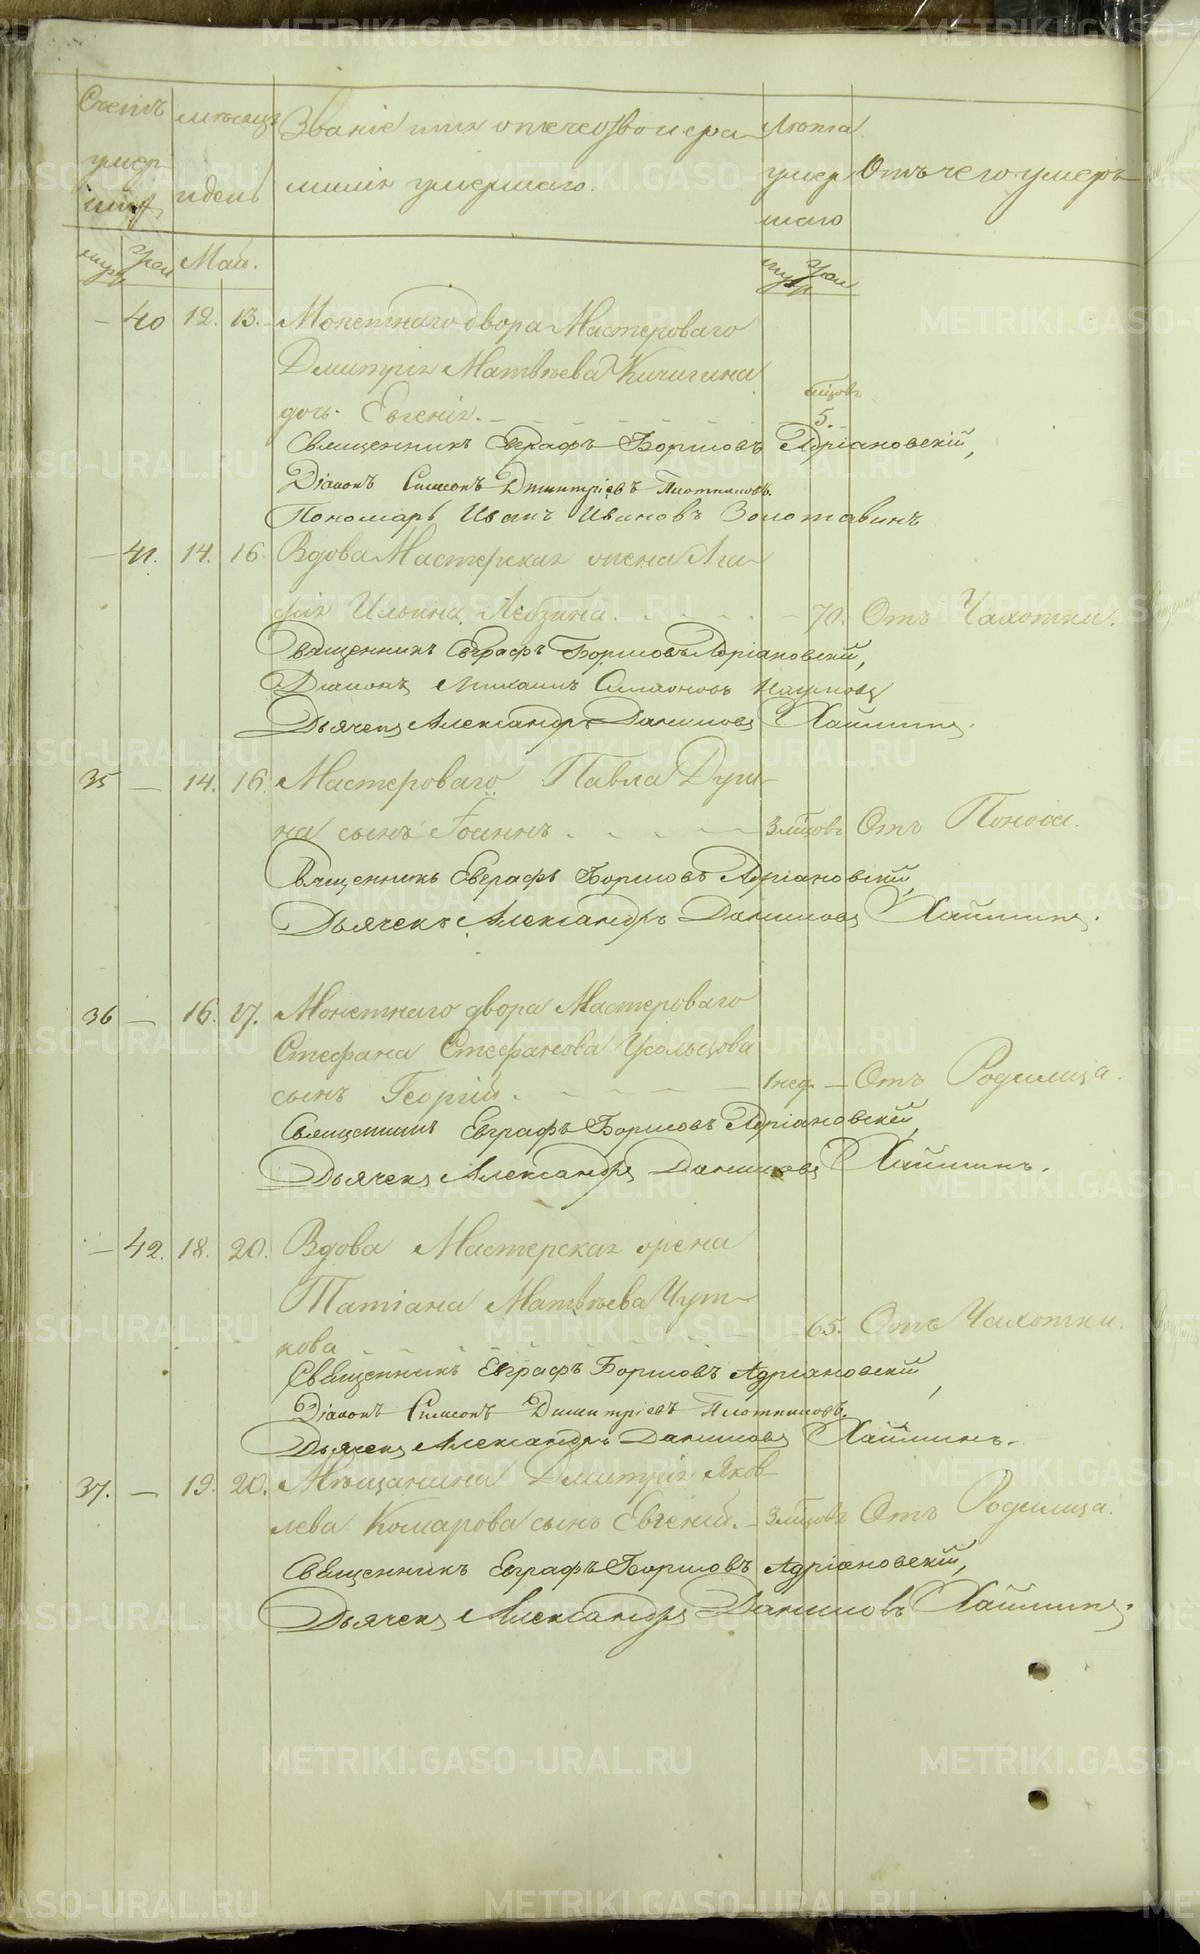 Счетъ умершихъ
мѣсяцъ и день
Званіе имя отечество и фамилія умершаго.
Лѣта умершаго
Отъ чего умеръ
муж жен Май.
муж жен
— 40 12. 13. Монетнаго двора Мастероваго
Димитрія Матвѣева Кичигина
дочь Евгенія. 5.
Священникъ Евграфъ Борисовъ Адріановскій,
Діаконъ Симеонъ Димитріевъ Плотниковъ.
Пономарь Иванъ Ивановъ Золотавинъ
— 41. 14. 16. Вдова Мастерская жена Ага-
фія Ильина — 70. Отъ Чахотки.
Священникъ Евграфъ Борисовъ Адріановскій,
Діаконъ Михаилъ Симоновъ
Дьячекъ Александръ Даниловъ Хаминъ.
35 — 14. 16. Мастероваго Павла
на сынъ Іоаннъ 3 мѣсяцовъ Отъ Поноса.
Священникъ Евграфъ Борисовъ Адріановскій,
Дьячекъ Александръ Даниловъ Хаминъ.
36 — 16. 17. Монетнаго двора Мастероваго
Стефана Стефанова Усольцова
сынъ Георгій. 1 нед. — Отъ Родимца.
Священникъ Евграфъ Борисовъ Адріановскій,
Дьячекъ Александръ Даниловъ Хаминъ.
— 42. 18. 20. Вдова Мастерская жена
Татіана Матвѣева Чут-
кова — 65. Отъ Чахотки.
Священникъ Евграфъ Борисовъ Адріановскій,
Діаконъ Симеонъ Димитріевъ Плотниковъ.
Дьячекъ Александръ Даниловъ Хаминъ.
37. — 19. 20. Мѣщанина Димитрія Яков-
лева Комарова сынъ Евгеній. 3 мѣсяцовъ Отъ Родимца.
Священникъ Евграфъ Борисовъ Адріановскій,
Дьячекъ Александръ Даниловъ Хаминъ.
METRIKI.GASO-URAL.RU